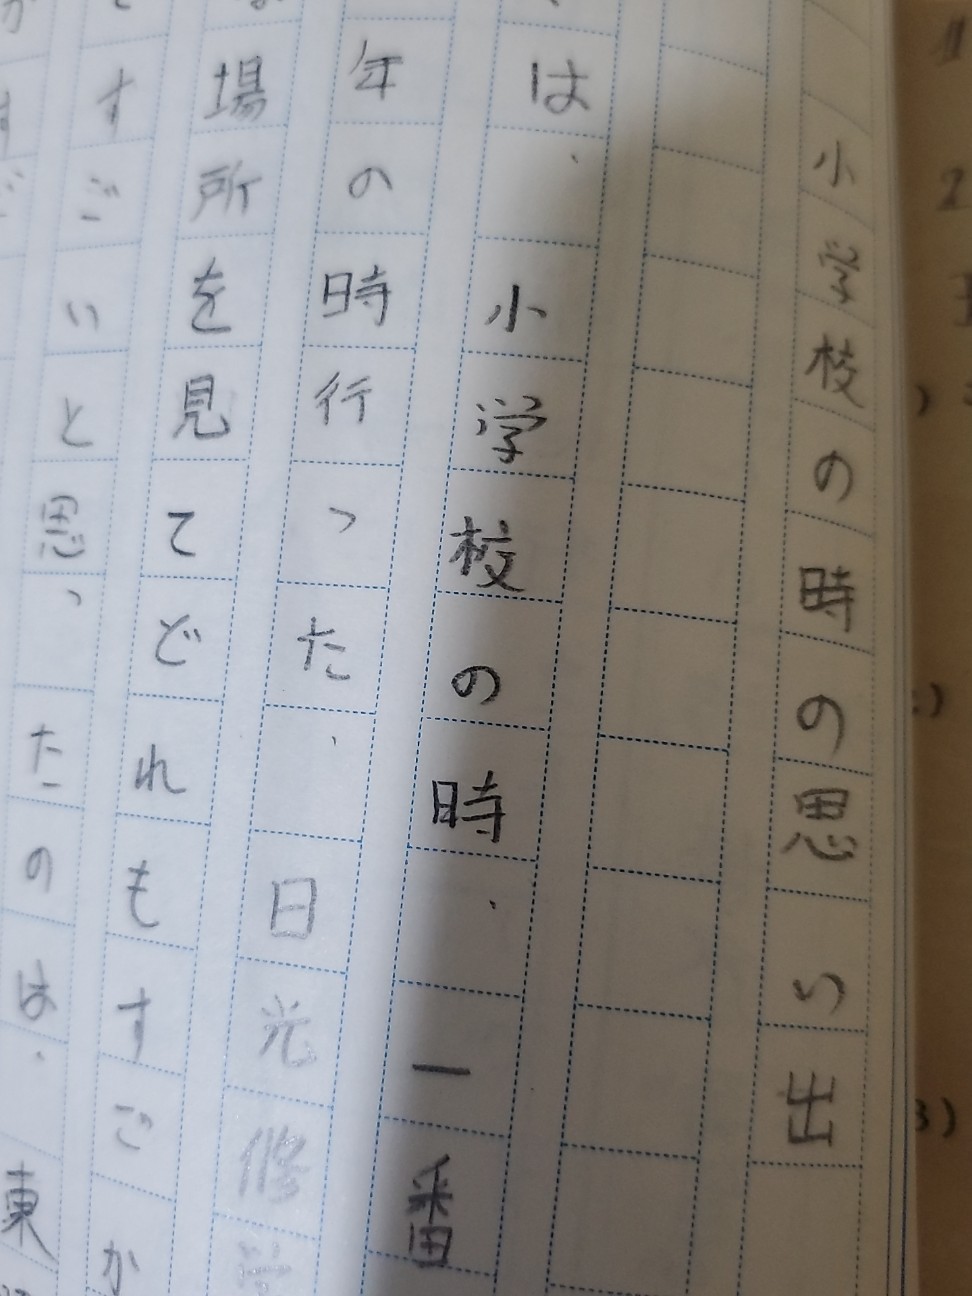 小学校の時の思い出
は、小学校の時、一番
年の時行った、日光修学
場所を見てどれもすごか
すごいと思ったのは、東